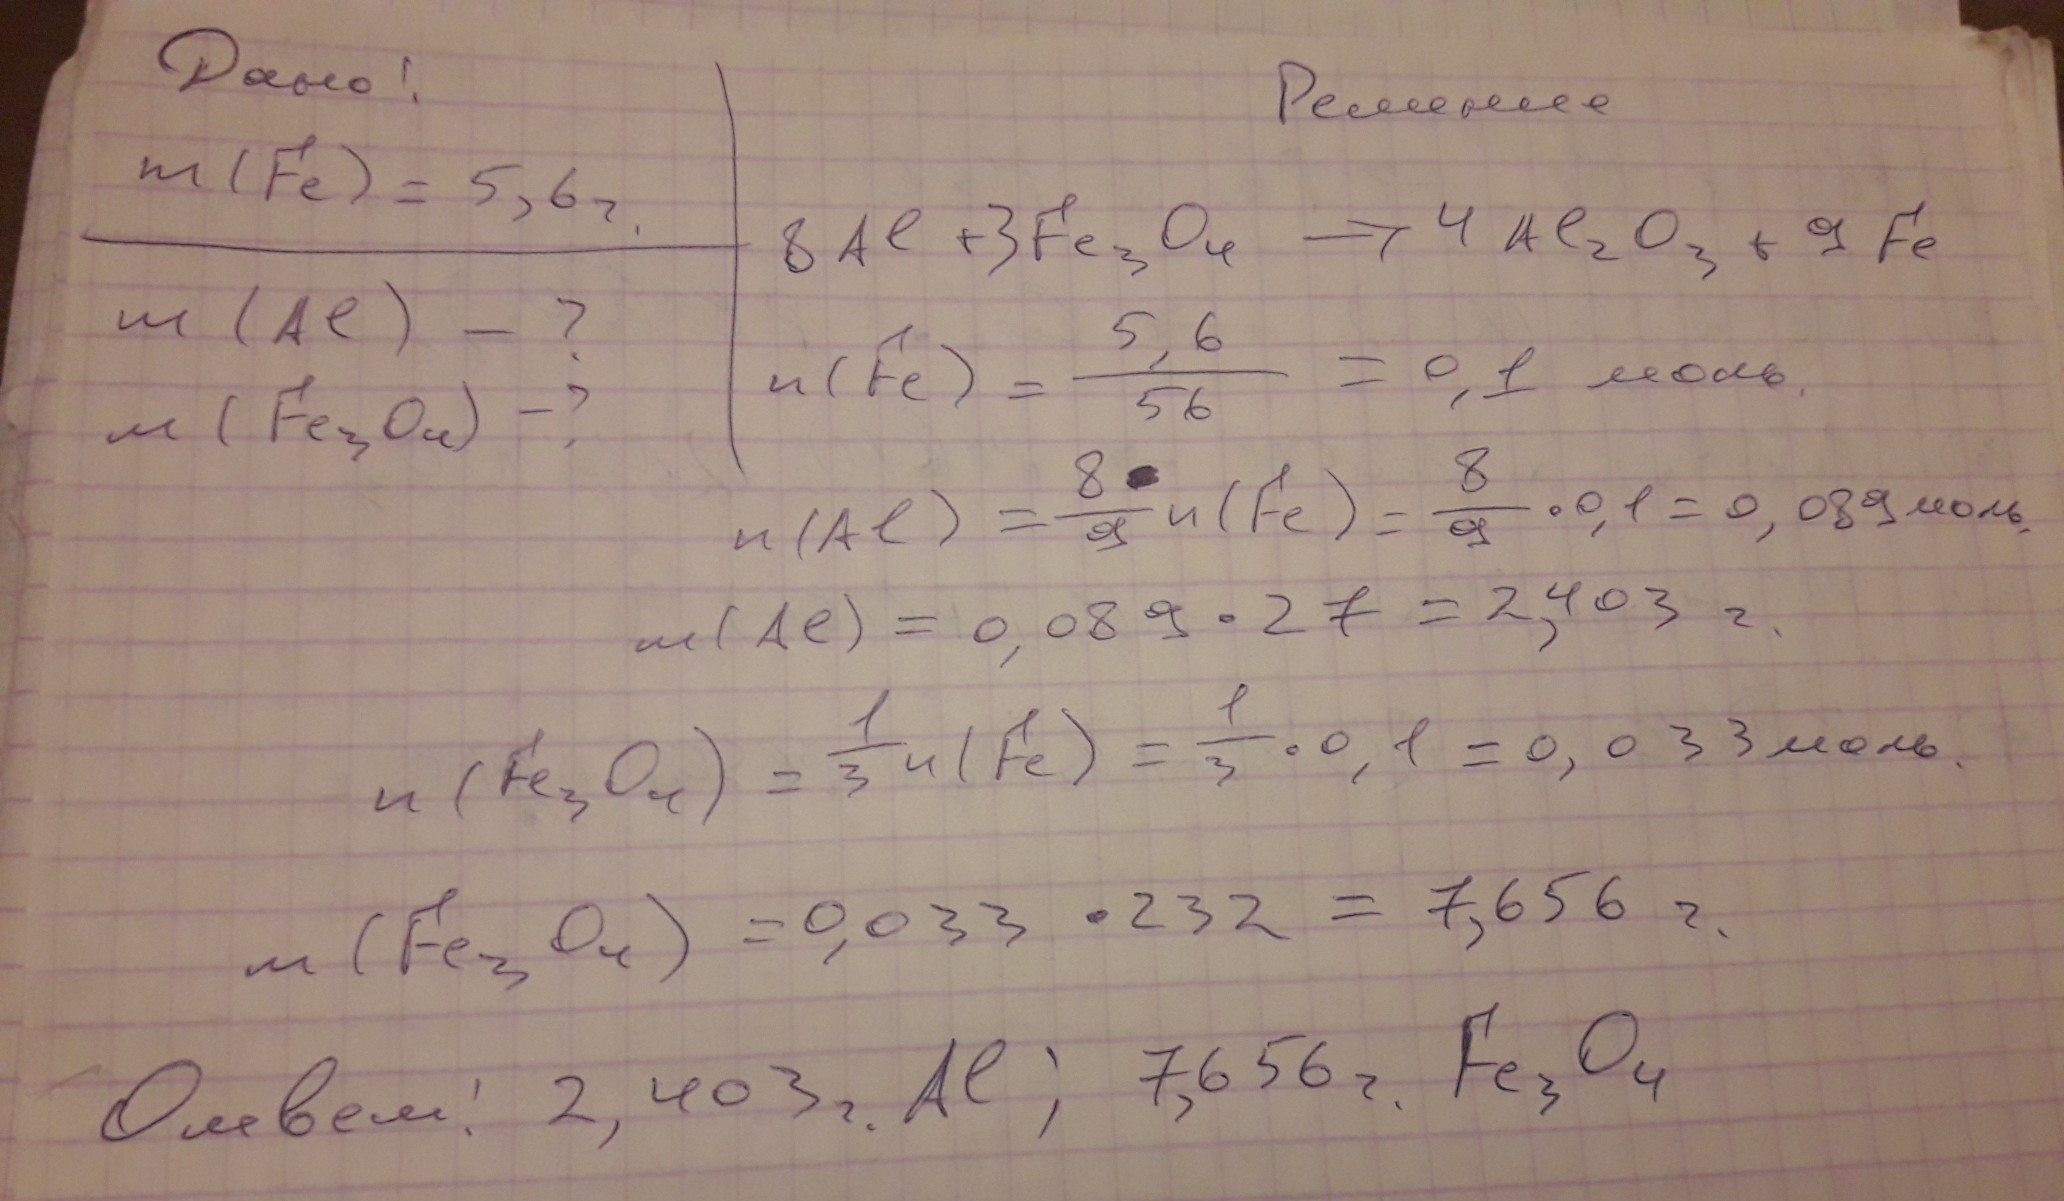 Дано:
m(Fe) = 5,6г.
m(Al) - ?
m(Fe₃O₄) - ?
Решение
8Al + 3Fe₃O₄ → 4Al₂O₃ + 9Fe
n(Fe) = 5,6/56 = 0,1 моль.
n(Al) = 8/9 n(Fe) = 8/9 · 0,1 = 0,089 моль.
m(Al) = 0,089 · 27 = 2,403 г.
n(Fe₃O₄) = 1/3 n(Fe) = 1/3 · 0,1 = 0,033 моль.
m(Fe₃O₄) = 0,033 · 232 = 7,656 г.
Ответ: 2,403г. Al; 7,656г. Fe₃O₄